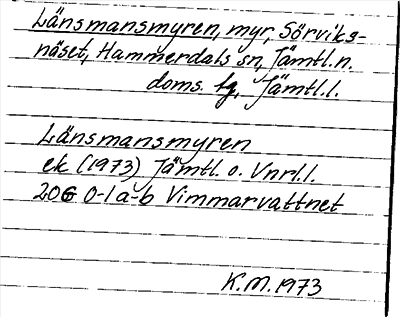 Länsmansmyren, myr, Sörviks-
näset, Hammerdals sn, Jämtl.n.
doms. tg, Jämtl.l.
Länsmansmyren
ek (1973) Jämtl. o. Vnrl.l.
206 0-1 a-b Vimmarvattnet
K.M. 1973